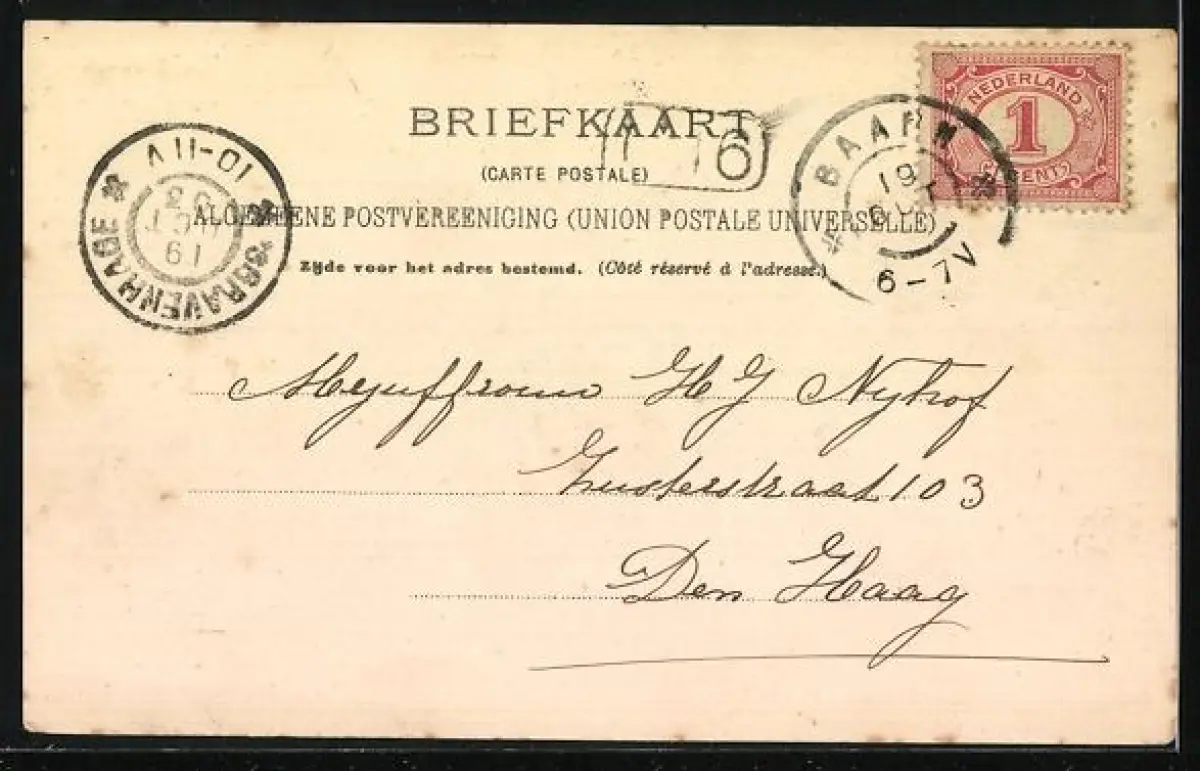 BRIEFKAART
(CARTE POSTALE)
6
ALGEMEENE POSTVEREENIGING (UNION POSTALE UNIVERSELLE)
Zijde voor het adres bestemd. (Côté réservé à l'adresse.)
NEDERLAND
1
CENT
BAARN
19
6-7V
'SGRAVENHAGE
10-11V
19
03
Mejuffrouw H J Nyhof
Zusterstraat 103
Den Haag